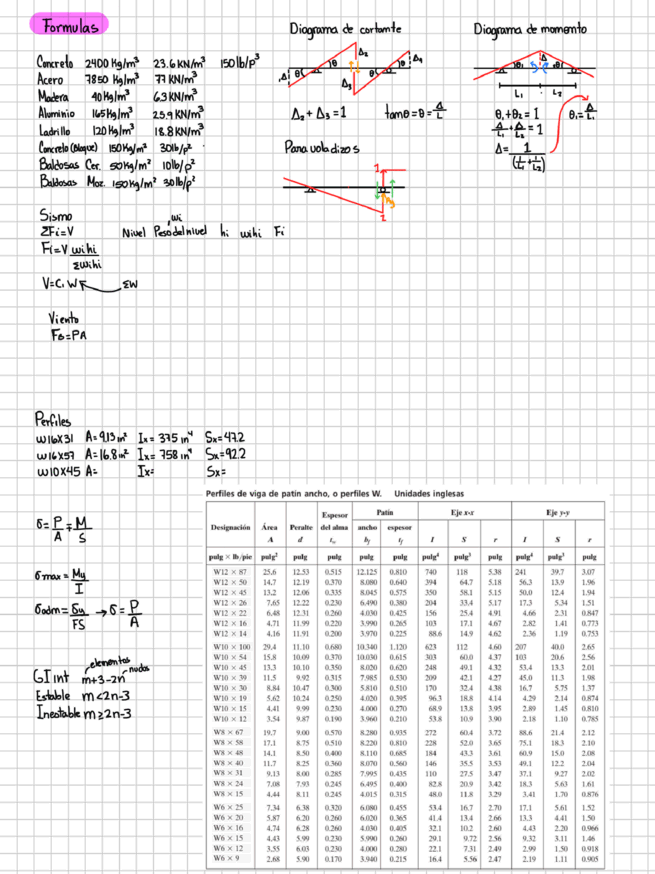 Formulas
Diagrama de cortante
Diagrama de momento
Concreto 2400 kg/m³ 23.6 KN/m³ 150 lb/p³
Acero 7850 kg/m³ 77 KN/m³
Madera 40 kg/m³ 6.3 KN/m³
Aluminio 165 kg/m³ 25.9 KN/m³
Ladrillo 120 kg/m³ 18.8 KN/m³
Concreto (Bloque) 150 kg/m² 30 lb/p²
Baldosas Cer. 50 kg/m² 10 lb/p²
Baldosas Moz. 150 kg/m² 30 lb/p²
Δ₂ + Δ₃ = 1 tanθ = θ = Δ/L
Para voladizos
1
1
L₁ L₂
θ₁ + θ₂ = 1 θ₁ = Δ/L₁
Δ/L₁ + Δ/L₂ = 1
Δ = 1/(1/L₁ + 1/L₂)
Sismo
ΣFi = V
wi
Nivel Peso del nivel hi wihi Fi
Fi = V wihi/Σwihi
V = Cs W ΣW
Viento
Fs = PA
Perfiles
W16x31 A = 9.13 in² Ix = 375 in⁴ Sx = 47.2
W16x57 A = 16.8 in² Ix = 758 in⁴ Sx = 92.2
W10x45 A = Ix = Sx =
Perfiles de viga de patín ancho, o perfiles W. Unidades inglesas
Espesor Patín Eje x-x Eje y-y
Designación Área Peralte del alma ancho espesor
A d t_w b_f t_f I S r I S r
pulg × lb/pie pulg² pulg pulg pulg pulg pulg⁴ pulg³ pulg pulg⁴ pulg³ pulg
W12 × 87 25.6 12.53 0.515 12.125 0.810 740 118 5.38 241 39.7 3.07
W12 × 50 14.7 12.19 0.370 8.080 0.640 394 64.7 5.18 56.3 13.9 1.96
W12 × 45 13.2 12.06 0.335 8.045 0.575 350 58.1 5.15 50.0 12.4 1.94
W12 × 26 7.65 12.22 0.230 6.490 0.380 204 33.4 5.17 17.3 5.34 1.51
W12 × 22 6.48 12.31 0.260 4.030 0.425 156 25.4 4.91 4.66 2.31 0.847
W12 × 16 4.71 11.99 0.220 3.990 0.265 103 17.1 4.67 2.82 1.41 0.773
W12 × 14 4.16 11.91 0.200 3.970 0.225 88.6 14.9 4.62 2.36 1.19 0.753
W10 × 100 29.4 11.10 0.680 10.340 1.120 623 112 4.60 207 40.0 2.65
W10 × 54 15.8 10.09 0.370 10.030 0.615 303 60.0 4.37 103 20.6 2.56
W10 × 45 13.3 10.10 0.350 8.020 0.620 248 49.1 4.32 53.4 13.3 2.01
W10 × 39 11.5 9.92 0.315 7.985 0.530 209 42.1 4.27 45.0 11.3 1.98
W10 × 30 8.84 10.47 0.300 5.810 0.510 170 32.4 4.38 16.7 5.75 1.37
W10 × 19 5.62 10.24 0.250 4.020 0.395 96.3 18.8 4.14 4.29 2.14 0.874
W10 × 15 4.41 9.99 0.230 4.000 0.270 68.9 13.8 3.95 2.89 1.45 0.810
W10 × 12 3.54 9.87 0.190 3.960 0.210 53.8 10.9 3.90 2.18 1.10 0.785
W8 × 67 19.7 9.00 0.570 8.280 0.935 272 60.4 3.72 88.6 21.4 2.12
W8 × 58 17.1 8.75 0.510 8.220 0.810 228 52.0 3.65 75.1 18.3 2.10
W8 × 48 14.1 8.50 0.400 8.110 0.685 184 43.3 3.61 60.9 15.0 2.08
W8 × 40 11.7 8.25 0.360 8.070 0.560 146 35.5 3.53 49.1 12.2 2.04
W8 × 31 9.13 8.00 0.285 7.995 0.435 110 27.5 3.47 37.1 9.27 2.02
W8 × 24 7.08 7.93 0.245 6.495 0.400 82.8 20.9 3.42 18.3 5.63 1.61
W8 × 15 4.44 8.11 0.245 4.015 0.315 48.0 11.8 3.29 3.41 1.70 0.876
W6 × 25 7.34 6.38 0.320 6.080 0.455 53.4 16.7 2.70 17.1 5.61 1.52
W6 × 20 5.87 6.20 0.260 6.020 0.365 41.4 13.4 2.66 13.3 4.41 1.50
W6 × 16 4.74 6.28 0.260 4.030 0.405 32.1 10.2 2.60 4.43 2.20 0.966
W6 × 15 4.43 5.99 0.230 5.990 0.260 29.1 9.72 2.56 9.32 3.11 1.46
W6 × 12 3.55 6.03 0.230 4.000 0.280 22.1 7.31 2.49 2.99 1.50 0.918
W6 × 9 2.68 5.90 0.170 3.940 0.215 16.4 5.56 2.47 2.19 1.11 0.905
σ = P/A ∓ M/S
σmax = My/I
σadm = σy/FS → σ = P/A
elementos
GI int m+3-2n nudos
Estable m<2n-3
Inestable m≥2n-3